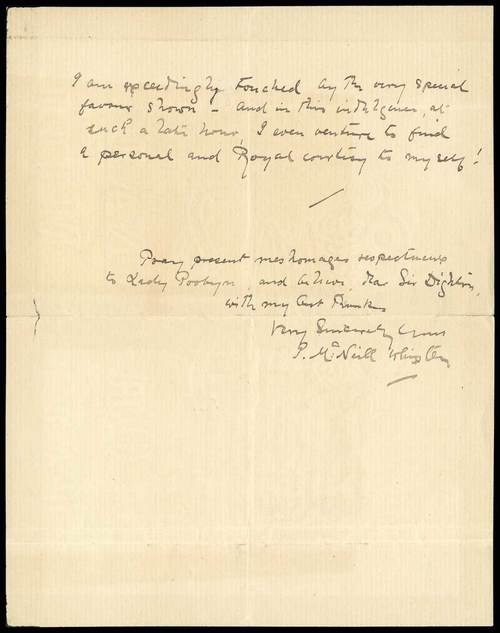 I am exceedingly touched by the very special
favour shown - and in this indulgence, at
such a late hour, I even venture to find
a personal and Royal courtesy to myself!
Pray present mes hommages respectueux
to Lady Probyn, and believe, dear Sir Dighton,
with my best thanks
Very Sincerely Yours
J. McNeill Whistler